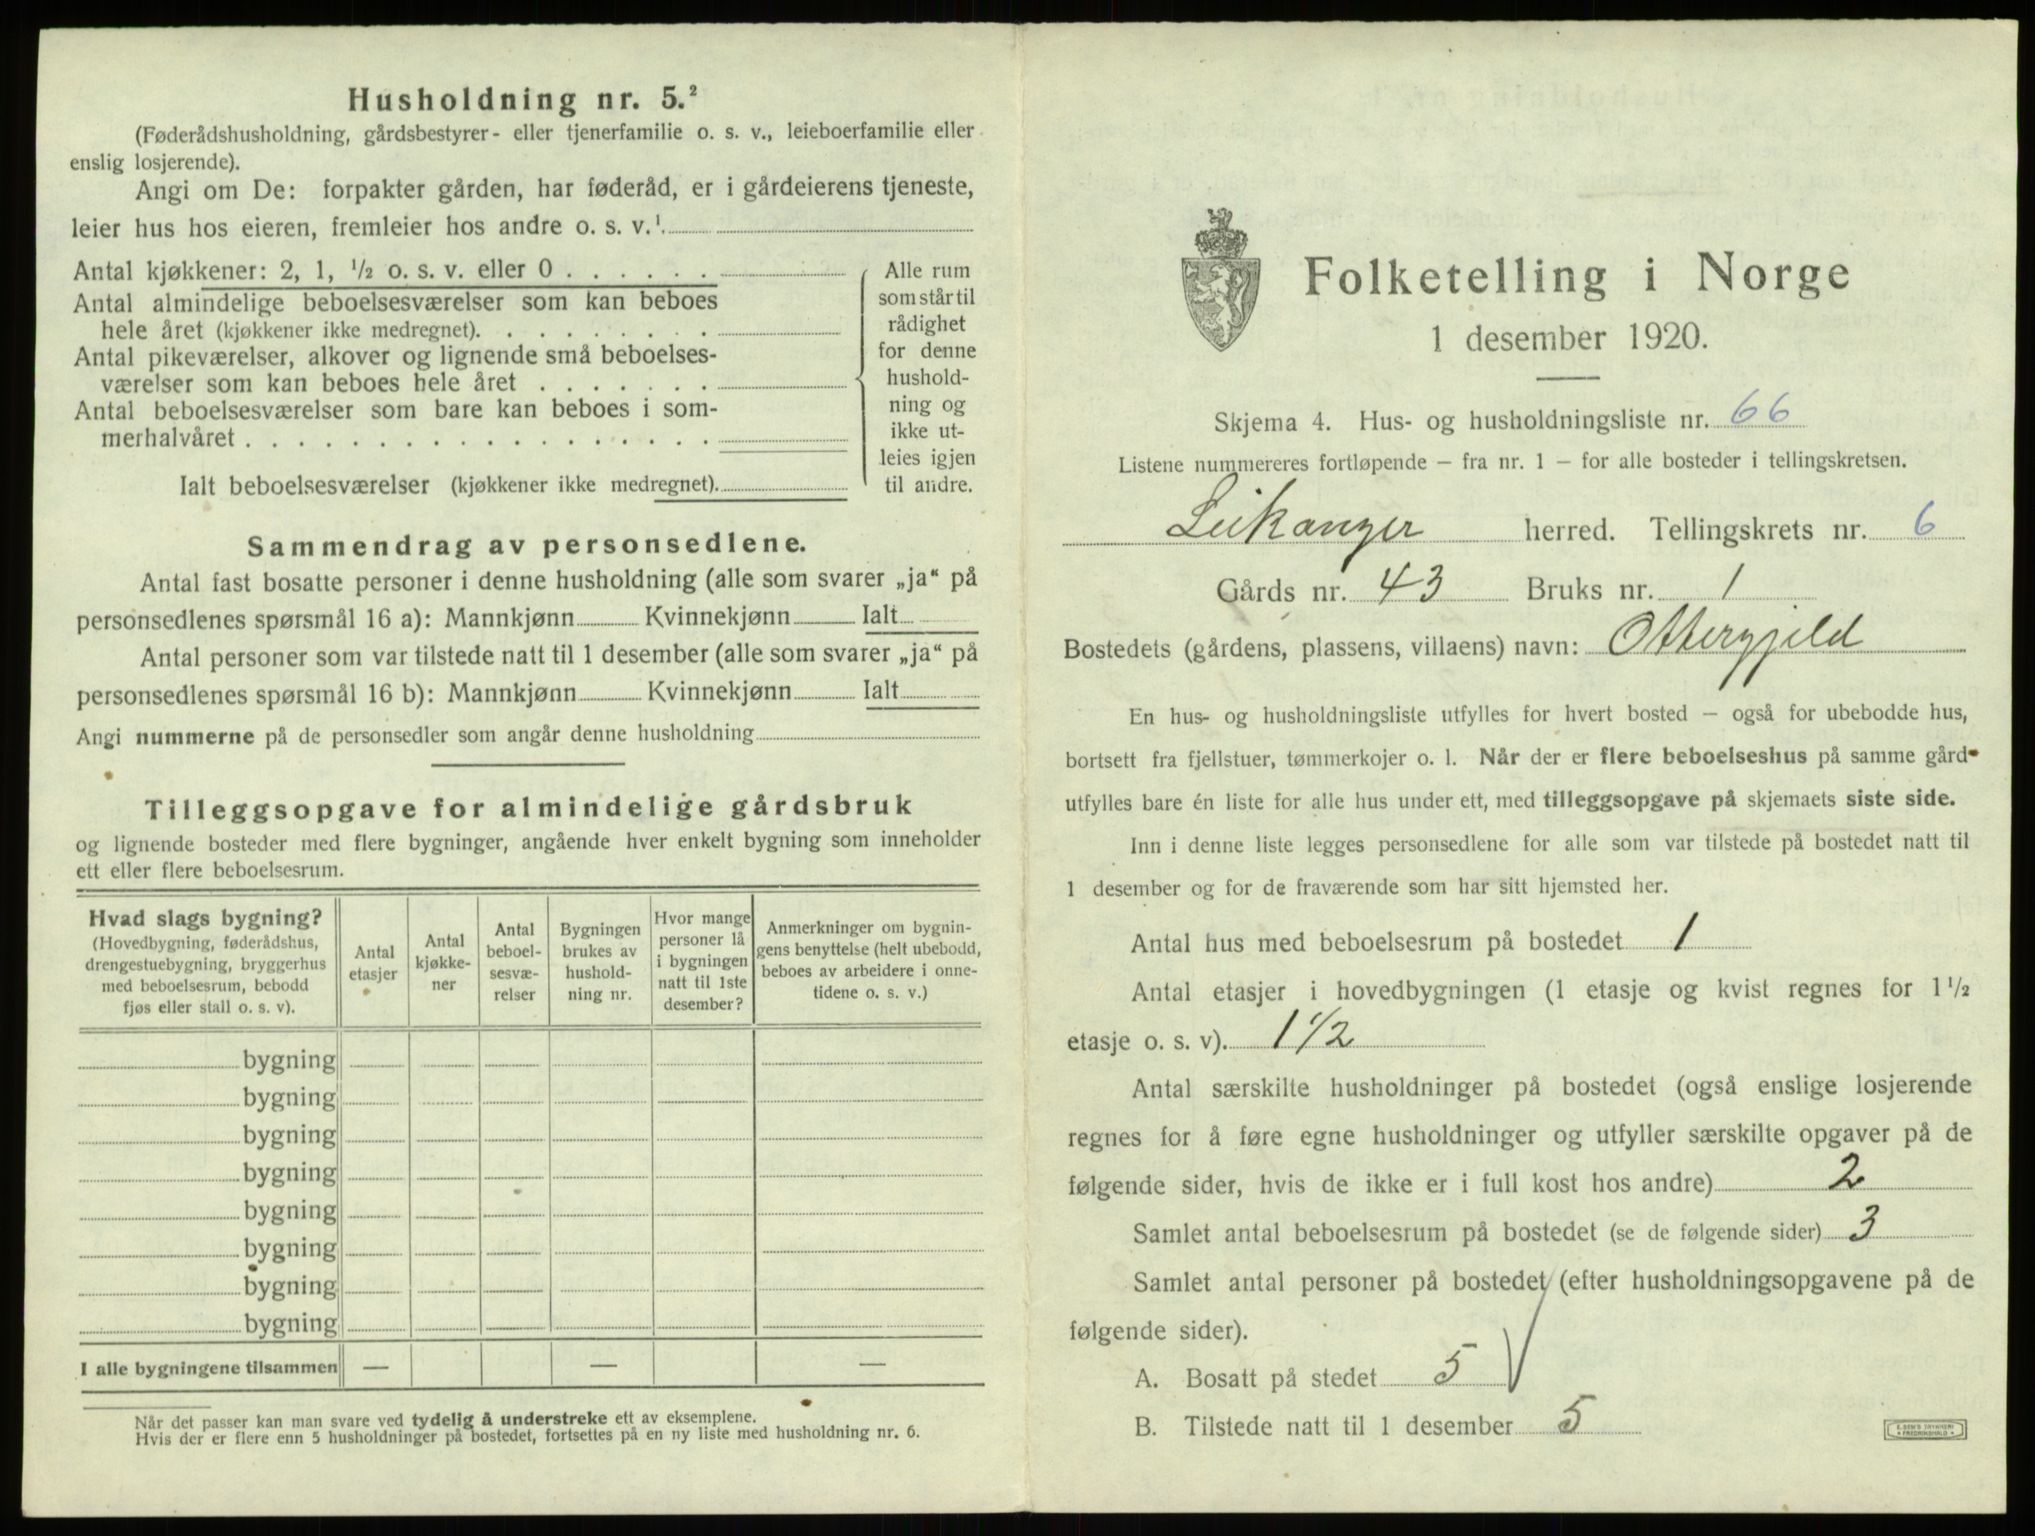 Husholdning nr. 5.²
(Føderådshusholdning, gårdsbestyrer- eller tjenerfamilie o. s. v., leieboerfamilie eller
enslig losjerende).
Angi om De: forpakter gården, har føderåd, er i gårdeierens tjeneste,
leier hus hos eieren, fremleier hos andre o. s. v.¹
Antal kjøkkener: 2, 1, ½ o. s. v. eller 0
Antal almindelige beboelsesværelser som kan beboes
hele året (kjøkkener ikke medregnet)
Antal pikeværelser, alkover og lignende små beboelses-
værelser som kan beboes hele året
Antal beboelsesværelser som bare kan beboes i som-
merhalvåret
Ialt beboelsesværelser (kjøkkener ikke medregnet)
Alle rum
som står til
rådighet
for denne
hushold-
ning og
ikke ut-
leies igjen
til andre.
Sammendrag av personsedlene.
Antal fast bosatte personer i denne husholdning (alle som svarer „ja“ på
personsedlenes spørsmål 16 a): Mannkjønn Kvinnekjønn Ialt
Antal personer som var tilstede natt til 1 desember (alle som svarer „ja“ på
personsedlenes spørsmål 16 b): Mannkjønn Kvinnekjønn Ialt
Angi nummerne på de personsedler som angår denne husholdning
Tilleggsopgave for almindelige gårdsbruk
og lignende bosteder med flere bygninger, angående hver enkelt bygning som inneholder
ett eller flere beboelsesrum.
Hvad slags bygning?
(Hovedbygning, føderådshus,
drengestuebygning, bryggerhus
med beboelsesrum, bebodd
fjøs eller stall o. s. v).
Antal
etasjer
Antal
kjøkke-
ner
Antal
beboel-
sesvæ-
relser
Bygningen
brukes av
hushold-
ning nr.
Hvor mange
personer lå
i bygningen
natt til 1ste
desember?
Anmerkninger om bygnin-
gens benyttelse (helt ubebodd,
beboes av arbeidere i onne-
tidene o. s. v.)
bygning
bygning
bygning
bygning
bygning
bygning
bygning
bygning
I alle bygningene tilsammen — — —
Når det passer kan man svare ved tydelig å understreke ett av eksemplene.
Hvis der er flere enn 5 husholdninger på bostedet, fortsettes på en ny liste med husholdning nr. 6.
Folketelling i Norge
1 desember 1920.
Skjema 4. Hus- og husholdningsliste nr. 66
Listene nummereres fortløpende — fra nr. 1 — for alle bosteder i tellingskretsen.
Leikanger herred. Tellingskrets nr. 6
Gårds nr. 43 Bruks nr. 1
Bostedets (gårdens, plassens, villaens) navn: Ottergjeld
En hus- og husholdningsliste utfylles for hvert bosted — også for ubebodde hus,
bortsett fra fjellstuer, tømmerkojer o. l. Når der er flere beboelseshus på samme gård
utfylles bare én liste for alle hus under ett, med tilleggsopgave på skjemaets siste side.
Inn i denne liste legges personsedlene for alle som var tilstede på bostedet natt til
1 desember og for de fraværende som har sitt hjemsted her.
Antal hus med beboelsesrum på bostedet 1
Antal etasjer i hovedbygningen (1 etasje og kvist regnes for 1½
etasje o. s. v). 1 1/2
Antal særskilte husholdninger på bostedet (også enslige losjerende
regnes for å føre egne husholdninger og utfyller særskilte opgaver på de
følgende sider, hvis de ikke er i full kost hos andre) 2
Samlet antal beboelsesrum på bostedet (se de følgende sider) 3
Samlet antal personer på bostedet (efter husholdningsopgavene på de
følgende sider).
A. Bosatt på stedet 5
B. Tilstede natt til 1 desember 5